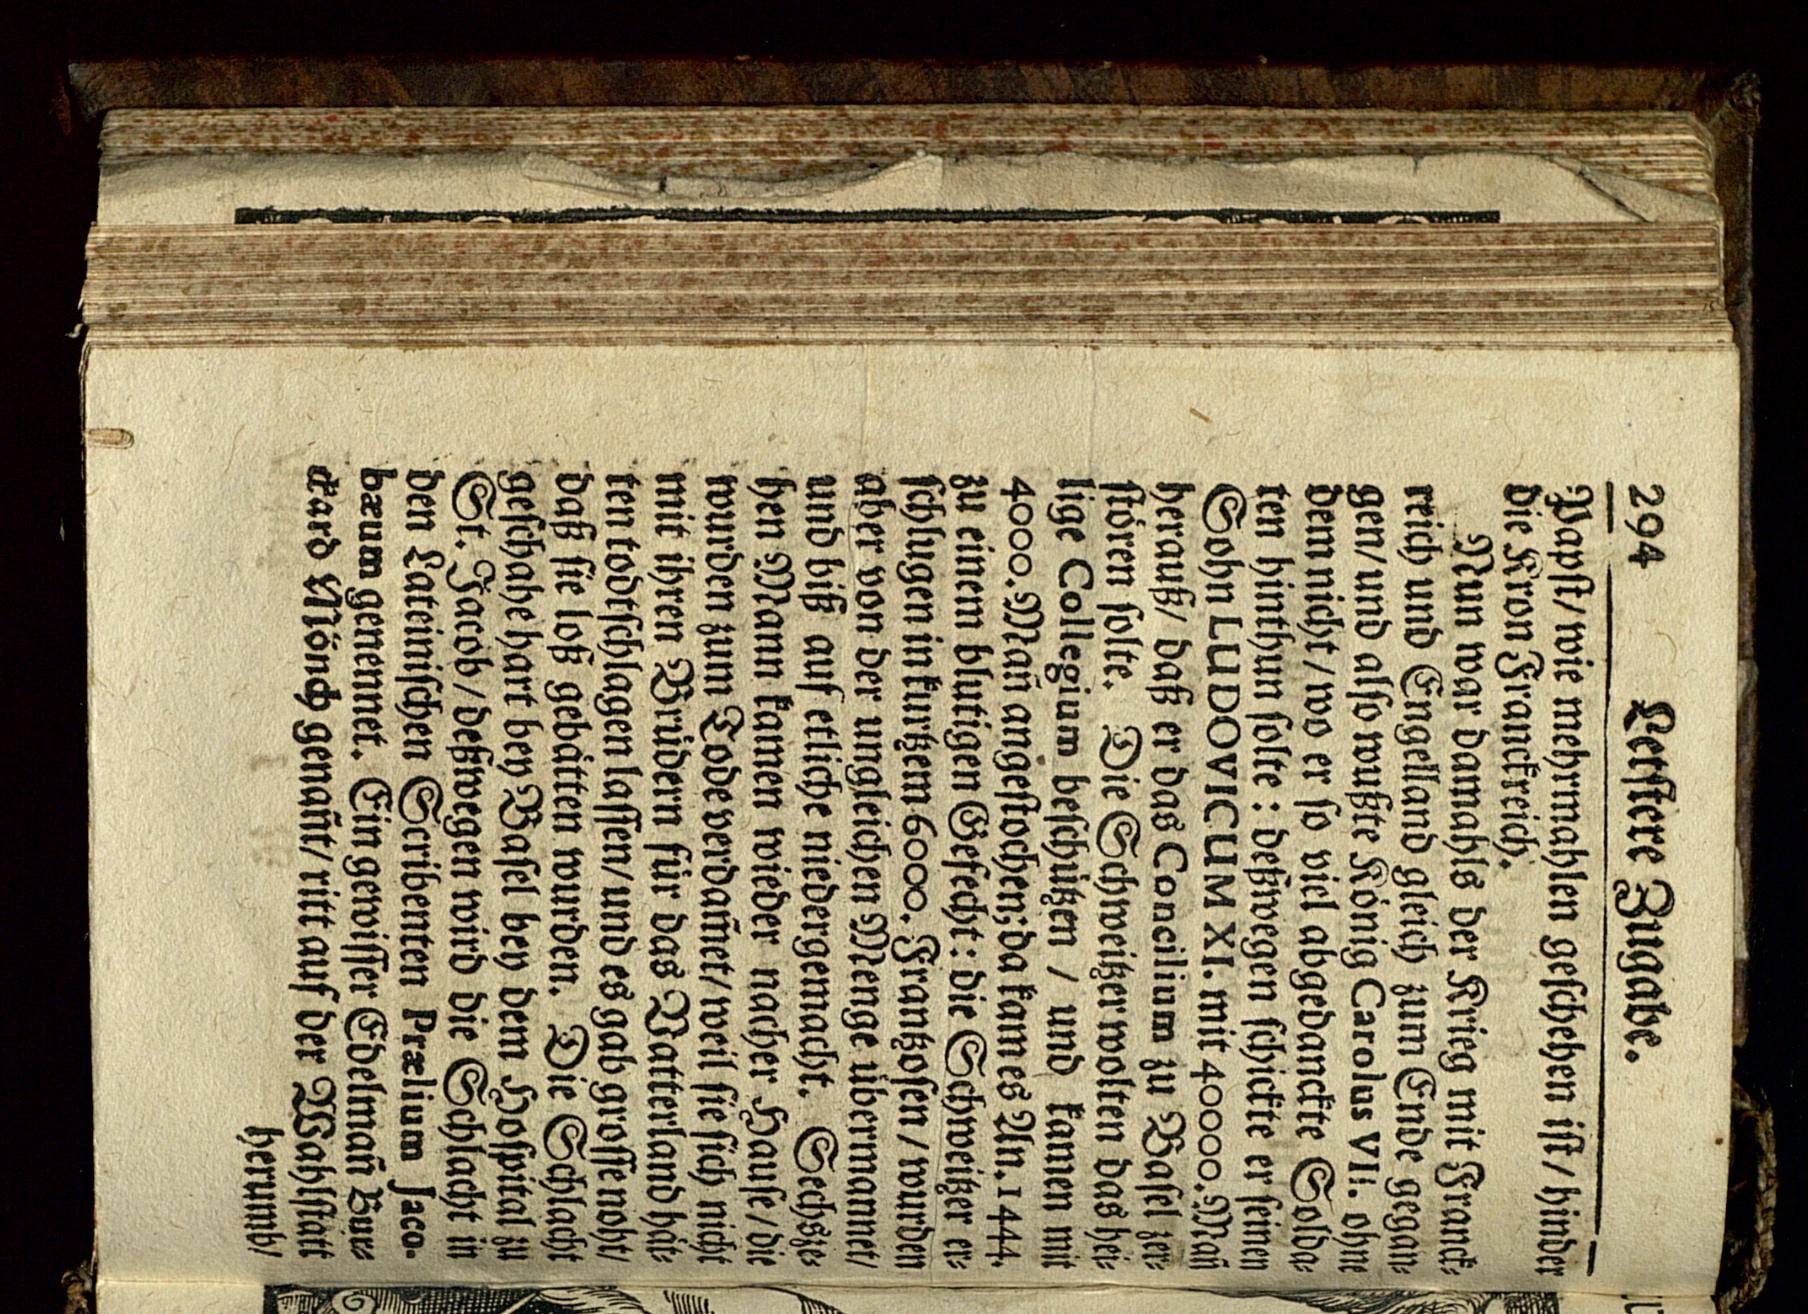 294 Letstere Zugabe.
Papst/ wie mehrmahlen geschehen ist/ hinder
die Kron Franckreich.
Nun war damahls der Krieg mit Franck-
reich und Engelland gleich zum Ende gegan-
gen/ und also wußte König Carolus VII. ohne
dem nicht/ wo er so viel abgedanckte Solda-
ten hinthun solte : deßwegen schickte er seinen
Sohn LUDOVICUM XI. mit 40000. Mañ
herauß/ daß er das Concilium zu Basel zer-
stören solte. Die Schweitzer wolten das hei-
lige Collegium beschützen / und kamen mit
4000. Mañ angestochen; da kam es An. 1444.
zu einem blutigen Gefecht : die Schweitzer er-
schlugen in kurtzem 6000. Frantzosen / wurden
aber von der ungleichen Menge übermannet/
und biß auf etliche niedergemacht. Sechsze-
hen Mann kamen wieder nacher Hause/ die
wurden zum Tode verdam̃et/ weil sie sich nicht
mit ihren Brüdern für das Vatterland hät-
ten todtschlagen lassen/ und es gab grosse noht/
daß sie loß gebätten wurden. Die Schlacht
geschahe hart bey Basel bey dem Hospital zu
St. Jacob / deßwegen wird die Schlacht in
den Lateinischen Scribenten Prælium Jaco-
bæum genennet. Ein gewisser Edelmañ Bur-
ckard Mönch genañt/ ritt auf der Wahlstatt
herumb/